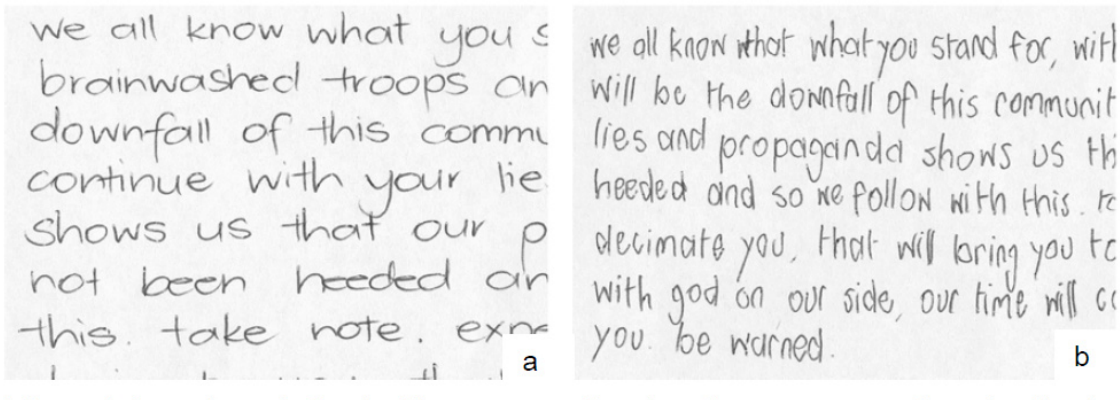 we all know what you s
brainwashed troops an
downfall of this commu
continue with your lie
shows us that our p
not been heeded an
this. take note. exp
a
we all know that what you stand for, with
will be the downfall of this communit
lies and propaganda shows us th
heeded and so we follow with this. 
decimate you, that will bring you to
with god on our side, our time will c
you. be warned.
b